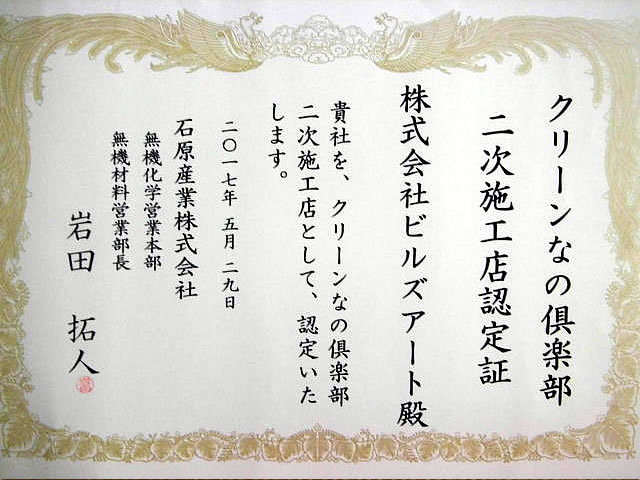 クリーンなの倶楽部
二次施工店認定証
株式会社ビルズアート殿
貴社を、クリーンなの倶楽部
二次施工店として、認定いた
します。
二〇一七年 五月 二九日
石原産業株式会社
無機化学営業本部
無機材料営業部長
岩田 拓人